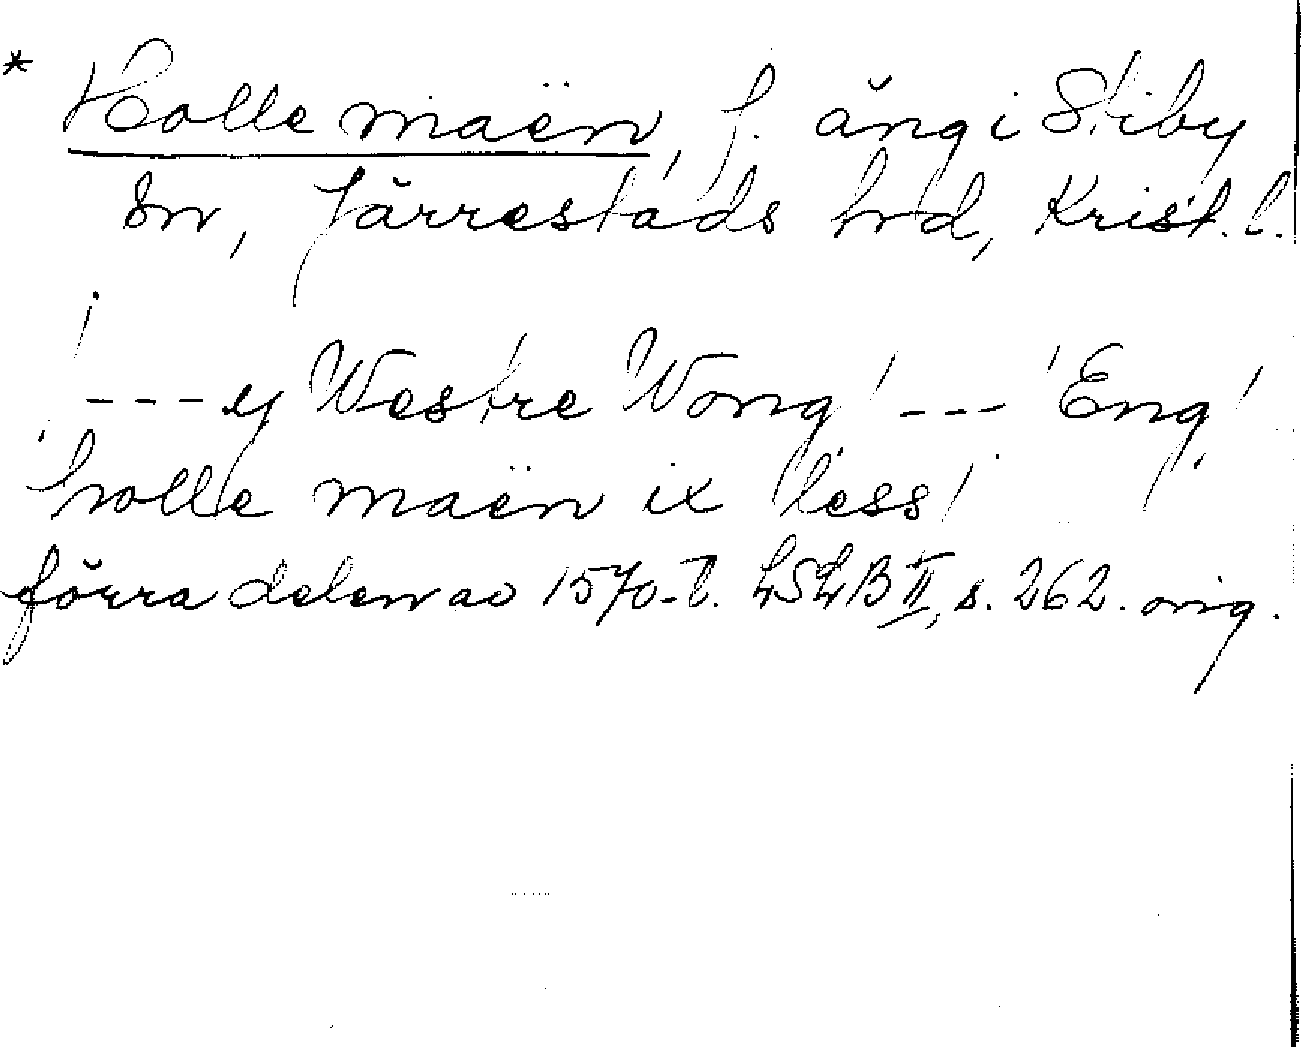 * Holle maën, f. äng i Stiby
sn, Järrestads hrd, Krist. l.
! --- y Westre Wong! --- 'Eng!
holle maën ix less!
förra delen av 1570-t. LSLB II, s. 262. orig.